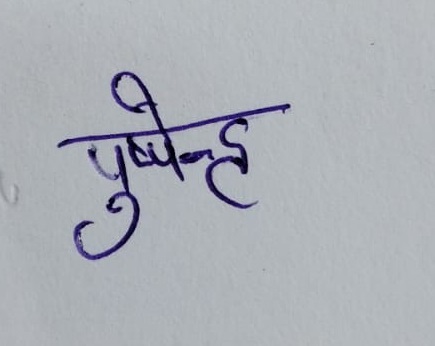 पुष्पेन्द्र